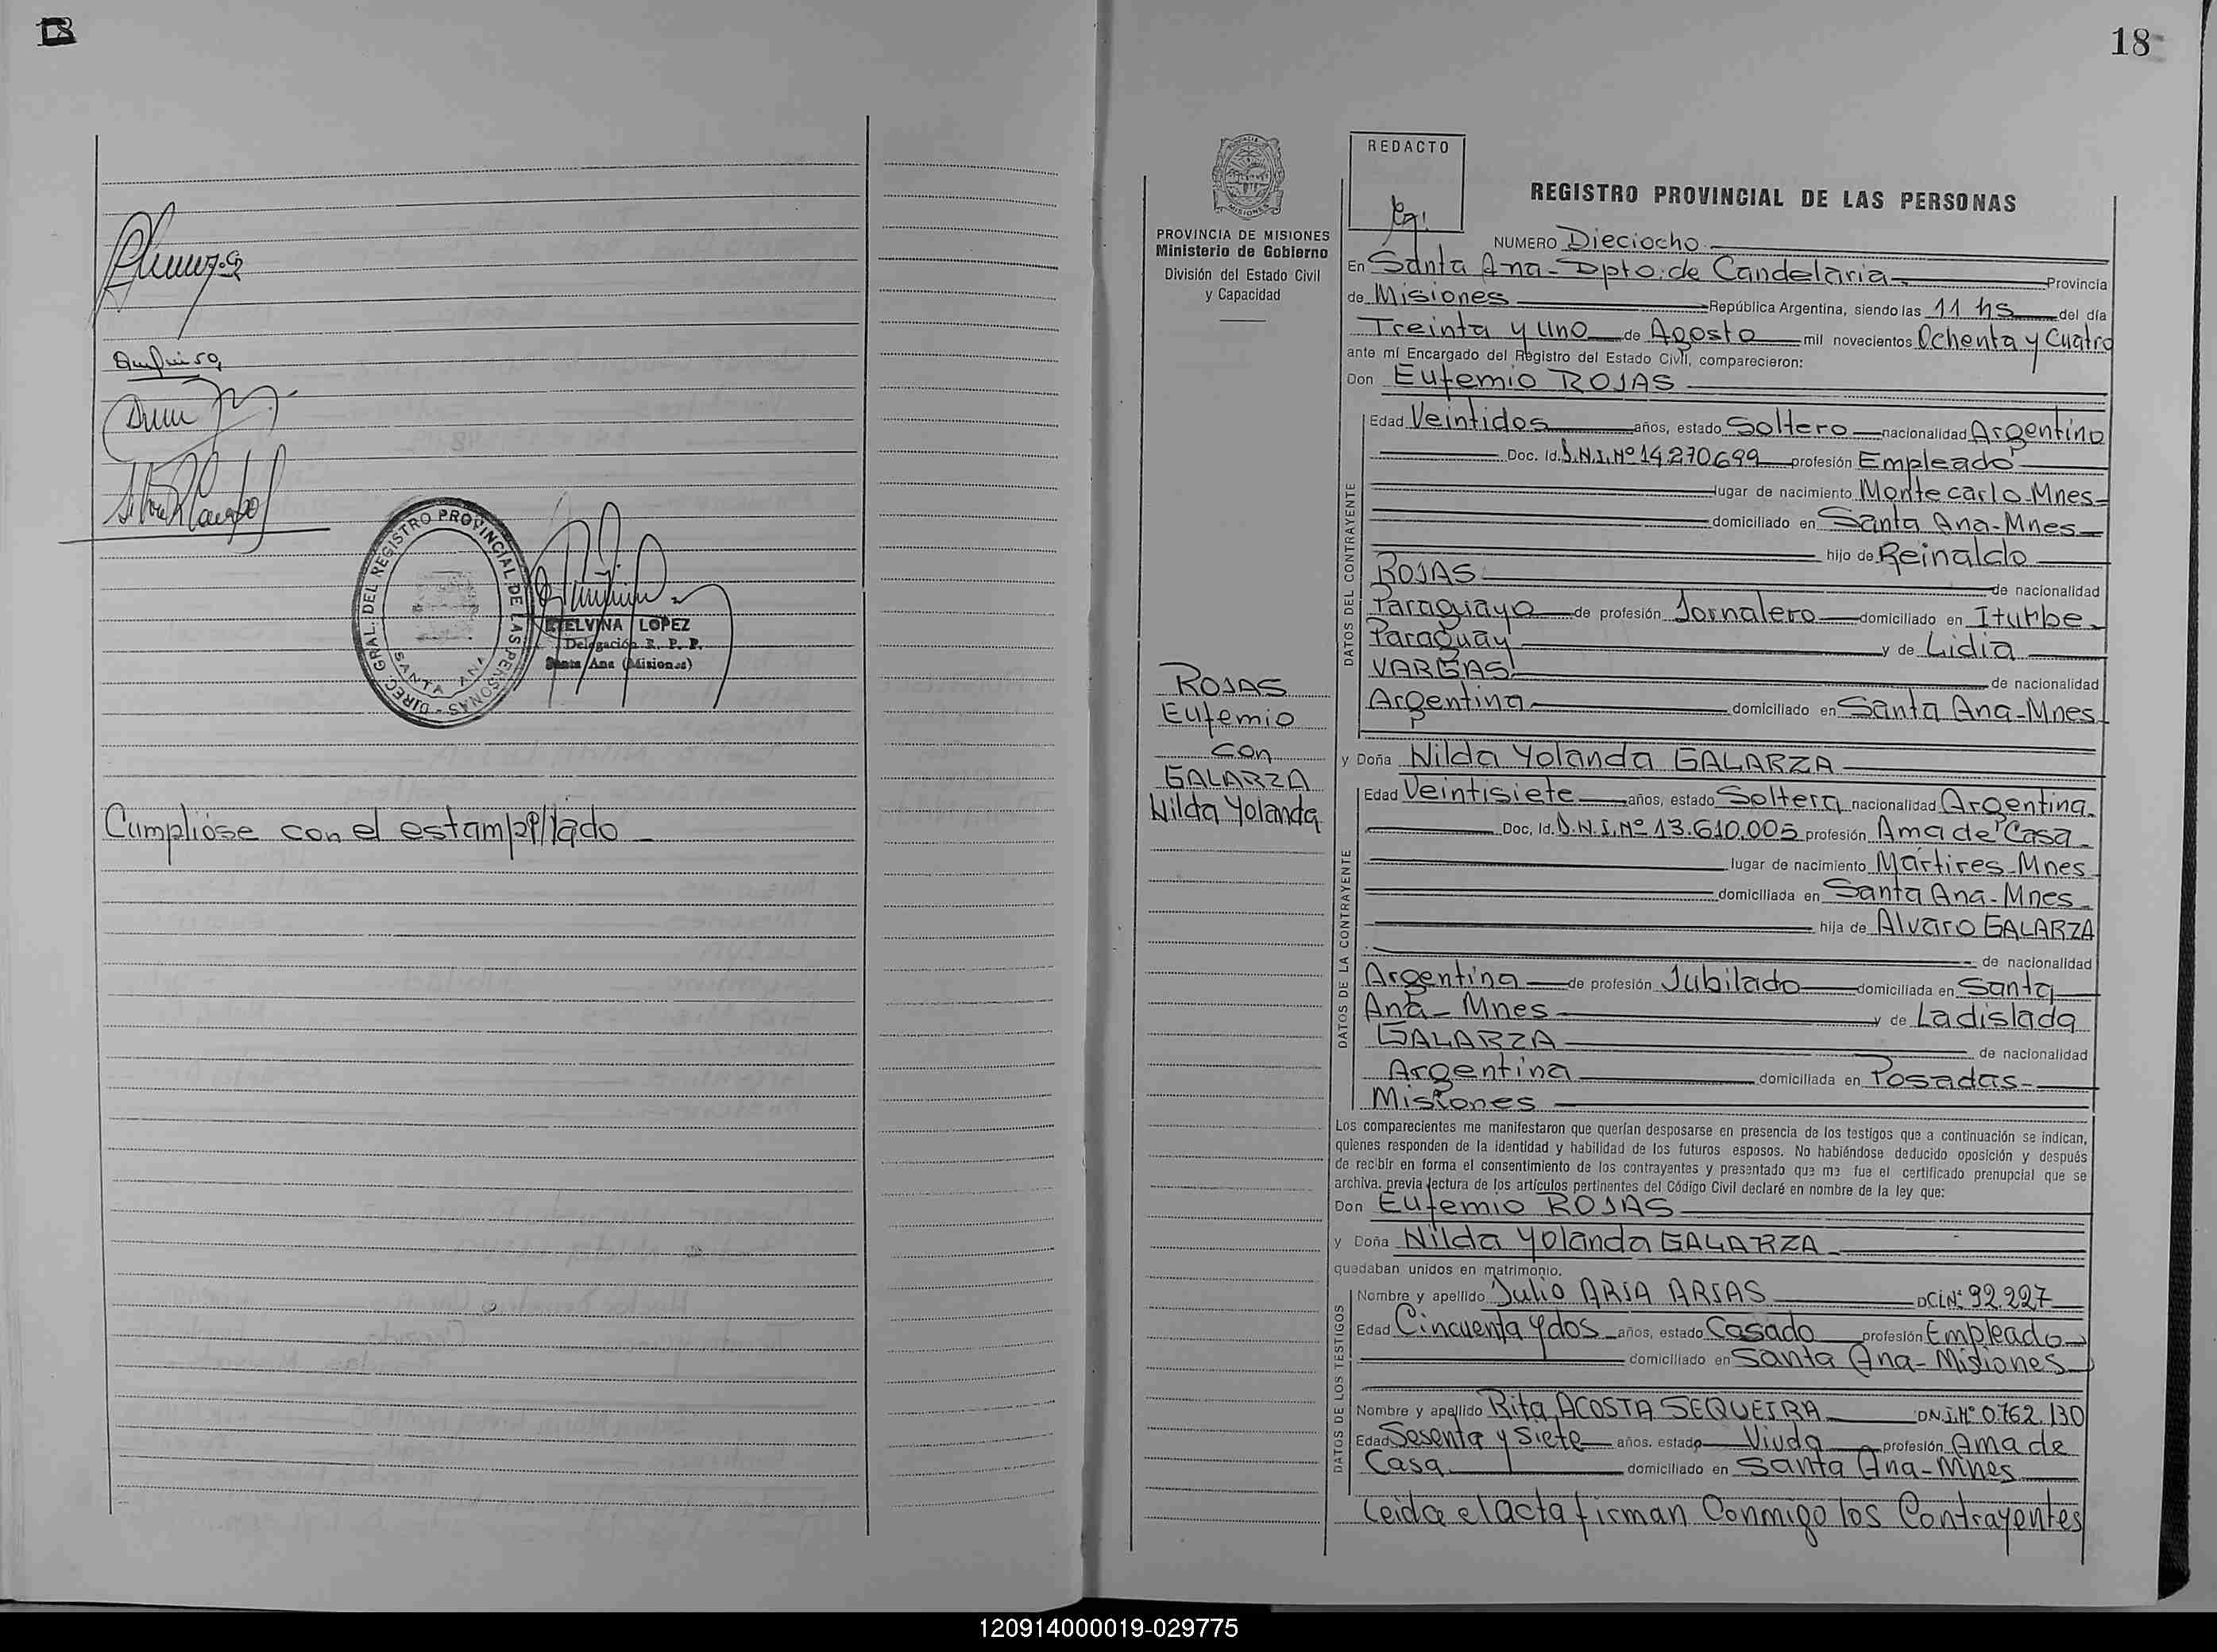 18
Cumplióse con el estampillado
DIREC. GRAL. DEL REGISTRO PROVINCIAL DE LAS PERSONAS -
SANTA ANA
ETELVINA LOPEZ
Delegación R. P. P.
Santa Ana (Misiones)
18
MISIONES
PROVINCIA DE MISIONES
Ministerio de Gobierno
División del Estado Civil
y Capacidad
ROJAS
Eufemio
con
GALARZA
Nilda Yolanda
REDACTO
REGISTRO PROVINCIAL DE LAS PERSONAS
NUMERO Dieciocho
En Santa Ana - Dpto. de Candelaria Provincia
de Misiones República Argentina, siendo las 11 hs del día
Treinta y Uno de Agosto mil novecientos Ochenta y Cuatro
ante mí Encargado del Registro del Estado Civil, comparecieron:
Don Eufemio ROJAS
DATOS DEL CONTRAYENTE
Edad Veintidos años, estado Soltero nacionalidad Argentino
Doc. Id. D.N.I. Nº 14.270.699 profesión Empleado
lugar de nacimiento Montecarlo-Mnes
domiciliado en Santa Ana-Mnes
hijo de Reinaldo
ROJAS de nacionalidad
Paraguayo de profesión Jornalero domiciliado en Iturbe
Paraguay y de Lidia
VARGAS de nacionalidad
Argentina domiciliado en Santa Ana-Mnes
y Doña Nilda Yolanda GALARZA
DATOS DE LA CONTRAYENTE
Edad Veintisiete años, estado Soltera nacionalidad Argentina
Doc. Id. D.N.I. Nº 13.610.005 profesión Ama de Casa
lugar de nacimiento Mártires-Mnes
domiciliada en Santa Ana-Mnes
hija de Alvaro GALARZA
de nacionalidad
Argentina de profesión Jubilado domiciliada en Santa
Ana - Mnes y de Ladislada
GALARZA de nacionalidad
Argentina domiciliada en Posadas-
Misiones
Los comparecientes me manifestaron que querían desposarse en presencia de los testigos que a continuación se indican,
quienes responden de la identidad y habilidad de los futuros esposos. No habiéndose deducido oposición y después
de recibir en forma el consentimiento de los contrayentes y presentado que me fue el certificado prenupcial que se
archiva. previa lectura de los artículos pertinentes del Código Civil declaré en nombre de la ley que:
Don Eufemio ROJAS
y Doña Nilda Yolanda GALARZA
quedaban unidos en matrimonio.
DATOS DE LOS TESTIGOS
Nombre y apellido Julio ARIA ARIAS D.C.I. Nº 92.227
Edad Cincuenta y dos años, estado Casado profesión Empleado
domiciliado en Santa Ana - Misiones
Nombre y apellido Rita ACOSTA SEQUEIRA D.N.I. Nº 0.762.130
Edad Sesenta y Siete años. estado Viuda profesión Ama de
Casa domiciliado en Santa Ana-Mnes
Leida el acta firman Conmigo los Contrayentes
120914000019-029775